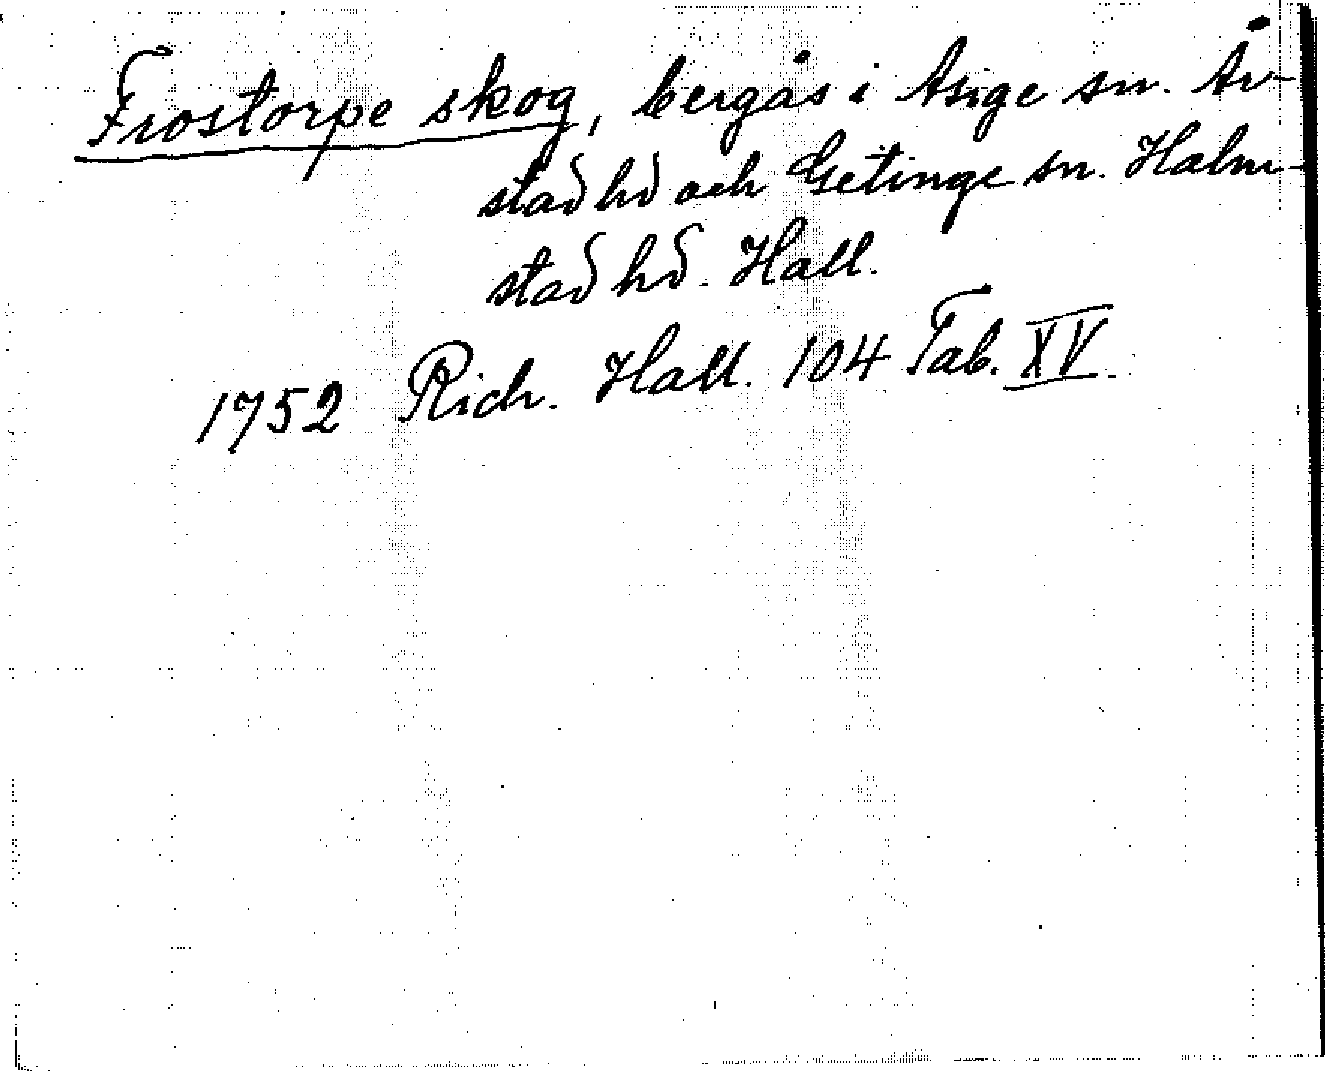 Frostorpe skog, bergås i Asige sn. År-
stad hd och Getinge sn. Halm-
stad hd. Hall.
1752 Rich. Hall. 104 Tab. XV.